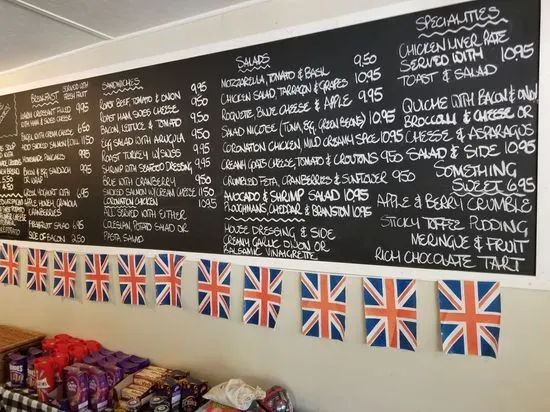 BREAKFAST SERVED WITH FRESH FRUIT
WARM CROISSANT FILLED WITH HAM & SWISS CHEESE 9.95
BAGEL WITH CREAM CHEESE 6.50
ADD SMOKED SALMON 11.50
HOMEMADE PANCAKES 9.95
BACON & EGG SANDWICH 9.95
GREEK YOGHURT WITH APPLE, HONEY, GRANOLA & CRANBERRIES
BREAKFAST SALAD 6.95
SIDE OF BACON
SANDWICHES
ROAST BEEF, TOMATO & ONION 9.95
ROAST HAM, SWISS CHEESE 9.95
BACON, LETTUCE & TOMATO 9.95
EGG SALAD WITH ARUGULA 9.95
ROAST TURKEY W/ SWISS 9.95
SHRIMP WITH SEAFOOD DRESSING 9.95
BRIE WITH CRANBERRY 9.50
SMOKED SALMON W/ CREAM CHEESE 11.50
CORONATION CHICKEN 10.95
ALL SERVED WITH EITHER
COLESLAW, POTATO SALAD OR
PASTA SALAD
SALADS
MOZZARELLA, TOMATO & BASIL 9.50
CHICKEN SALAD, TARRAGON & GRAPES 10.95
ROQUETTE, BLUE CHEESE & APPLE 9.95
SALAD NICOISE (TUNA, EGG, GREEN BEANS) 10.95
CORONATION CHICKEN, MILD CREAMY SPICE 10.95
CREAMY GOATS CHEESE, TOMATO & CROUTONS 9.50
CRUMBLED FETA, CRANBERRIES & SUNFLOWER 9.50
AVOCADO & SHRIMP SALAD 10.95
PLOUGHMANS, CHEDDAR & BRANSTON 10.95
HOUSE DRESSING & SIDE
CREAMY GARLIC, DIJON OR
BALSAMIC VINAIGRETTE
SPECIALITIES
CHICKEN LIVER PATE
SERVED WITH 10.95
TOAST & SALAD
QUICHE WITH BACON & ONION
BROCCOLI & CHEESE OR
CHEESE & ASPARAGUS
SALAD & SIDE 10.95
SOMETHING
SWEET 6.95
APPLE & BERRY CRUMBLE
STICKY TOFFEE PUDDING
MERINGUE & FRUIT
RICH CHOCOLATE TART